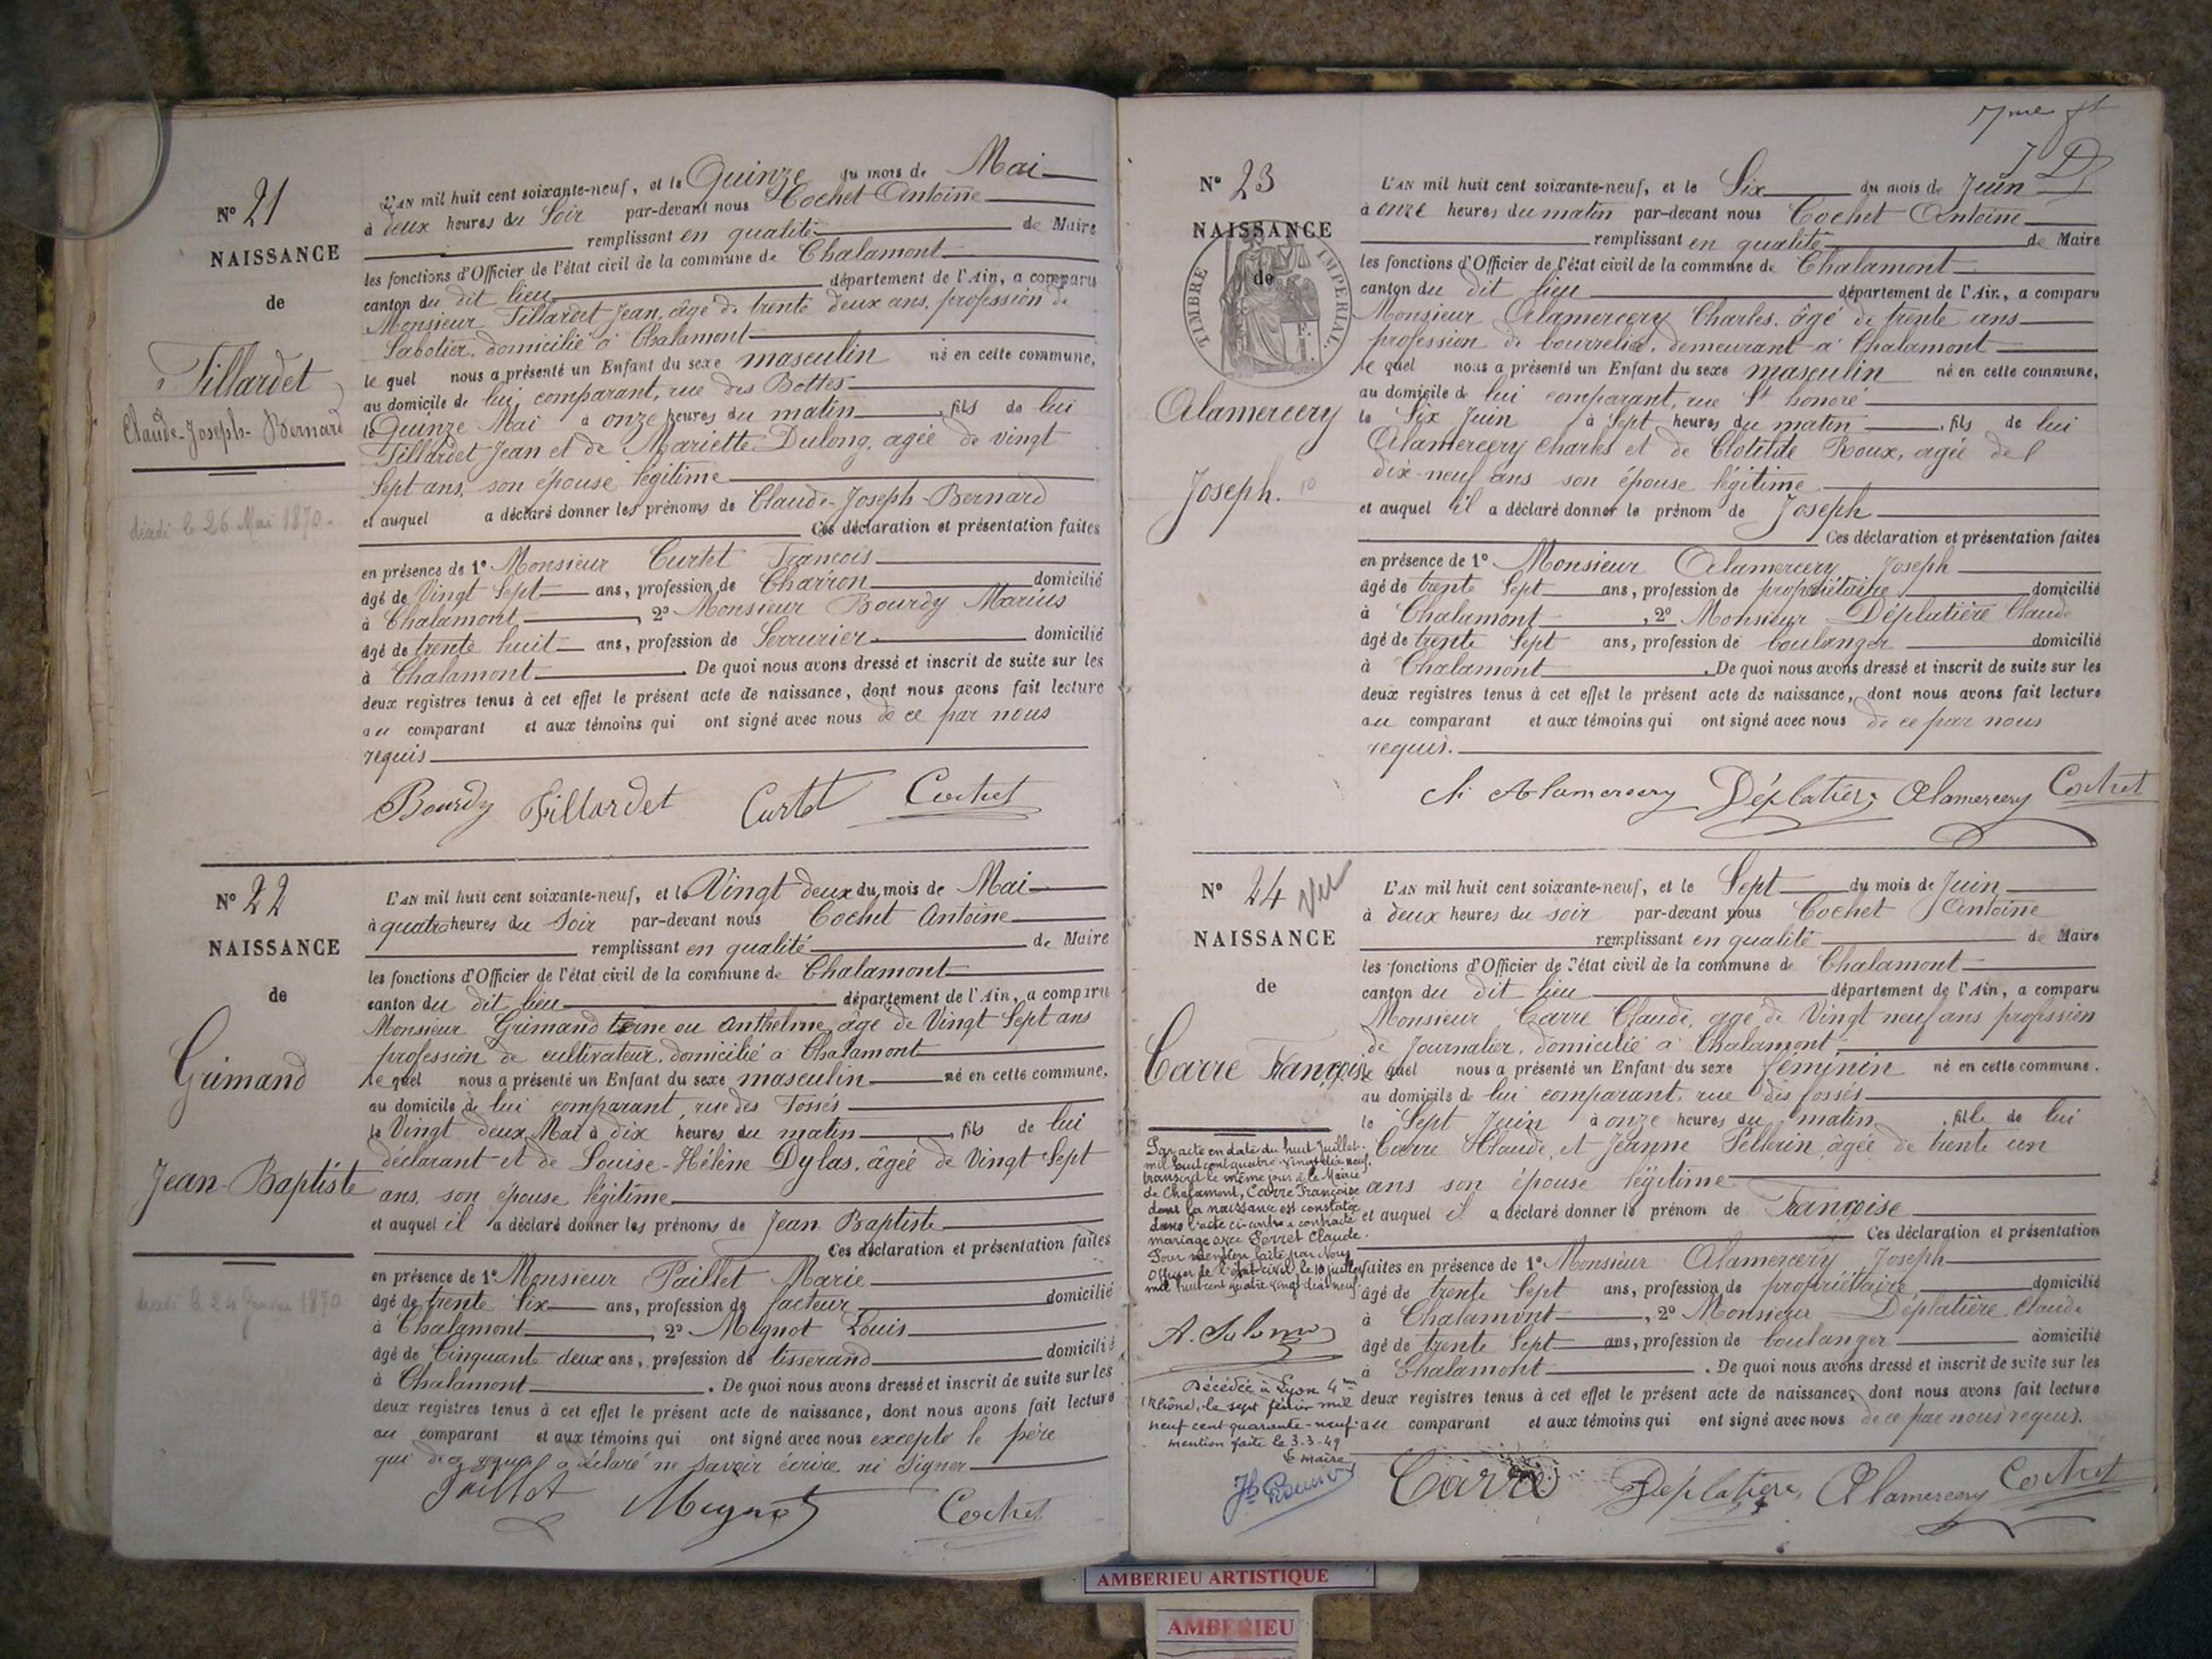 N° 21
NAISSANCE
de
Tillardet
Claude-Joseph-Bernard
décédé le 26 Mai 1870.
L'AN mil huit cent soixante-neuf, et le Quinze du mois de Mai
à deux heures du Soir par-devant nous Cochet Antoine
remplissant en qualité de Maire
les fonctions d'Officier de l'état civil de la commune de Chalamont
canton du dit lieu département de l'Ain, a comparu
Monsieur Tillardet Jean, âgé de trente deux ans, profession de
Sabotier, domicilié à Chalamont
le quel nous a présenté un Enfant du sexe masculin né en cette commune,
au domicile de lui comparant, rue des Bottes
le Quinze Mai à onze heures du matin, fils de lui
Tillardet Jean et de Mariette Dulong, agée de vingt
Sept ans, son épouse légitime
et auquel a déclaré donner les prénoms de Claude-Joseph-Bernard
Ces déclaration et présentation faites
en présence de 1° Monsieur Curtet Francois
âgé de Vingt Sept ans, profession de Charron domicilié
à Chalamont, 2° Monsieur Bourdy Marius
âgé de trente huit ans, profession de Serrurier domicilié
à Chalamont. De quoi nous avons dressé et inscrit de suite sur les
deux registres tenus à cet effet le présent acte de naissance, dont nous avons fait lecture
au comparant et aux témoins qui ont signé avec nous de ce par nous
requis
Bourdy Tillardet Curtet Cochet
N° 22
NAISSANCE
de
Grimand
Jean-Baptiste
décédé le 24 1870
L'AN mil huit cent soixante-neuf, et le Vingt deux du mois de Mai
à quatre heures du Soir par-devant nous Cochet Antoine
remplissant en qualité de Maire
les fonctions d'Officier de l'état civil de la commune de Chalamont
canton du dit lieu département de l'Ain, a comparu
Monsieur Grimand terme ou Anthelme, âgé de Vingt Sept ans
profession de cultivateur, domicilié à Chalamont
le quel nous a présenté un Enfant du sexe masculin né en cette commune,
au domicile de lui comparant, rue des Fossés
le Vingt deux Mai à dix heures du matin, fils de lui
déclarant et de Louise-Hélène Dylas, âgée de Vingt Sept
ans, son épouse légitime
et auquel il a déclaré donner les prénoms de Jean Baptiste
Ces déclaration et présentation faites
en présence de 1° Monsieur Paillet Marie
âgé de trente Six ans, profession de facteur domicilié
à Chalamont, 2° Mégnot Louis
âgé de Cinquante deux ans, profession de tisserand domicilié
à Chalamont. De quoi nous avons dressé et inscrit de suite sur les
deux registres tenus à cet effet le présent acte de naissance, dont nous avons fait lecture
au comparant et aux témoins qui ont signé avec nous excepté le père
qui de ce requis a déclaré ne savoir écrire ni signer
Paillet Mégnot Cochet
7me ft
N° 23
NAISSANCE
de
TIMBRE IMPERIAL.
Alamercery
Joseph. 10
L'AN mil huit cent soixante-neuf, et le Six du mois de Juin
à onze heures du matin par-devant nous Cochet Antoine
remplissant en qualité de Maire
les fonctions d'Officier de l'état civil de la commune de Chalamont
canton du dit lieu département de l'Ain, a comparu
Monsieur Alamercery Charles, âgé de trente ans
profession de bourrelier, demeurant à Chalamont
le quel nous a présenté un Enfant du sexe masculin né en cette commune,
au domicile de lui comparant, rue St honoré
le Six Juin à Sept heures du matin, fils de lui
Alamercery Charles et de Clotilde Roux, agée de
dix-neuf ans son épouse légitime
et auquel il a déclaré donner le prénom de Joseph
Ces déclaration et présentation faites
en présence de 1° Monsieur Alamercery Joseph
âgé de trente Sept ans, profession de propriétaire domicilié
à Chalamont, 2° Monsieur Déplatière Claude
âgé de trente Sept ans, profession de boulanger domicilié
à Chalamont. De quoi nous avons dressé et inscrit de suite sur les
deux registres tenus à cet effet le présent acte de naissance, dont nous avons fait lecture
au comparant et aux témoins qui ont signé avec nous de ce par nous
requis.
Ch Alamercery Déplatière Alamercery Cochet
N° 24 Vu
NAISSANCE
de
Carre Françoise
Par acte en date du huit Juillet
mil huit cent quatre-vingt-dix neuf,
transcrit le même jour à la Mairie
de Chalamont, Carre Françoise
dont la naissance est constatée
dans l'acte ci-contre a contracté
mariage avec Perret Claude.
Pour mention faite par Nous
Officier de l'état civil, le 10 juillet
mil huit cent quatre vingt dix neuf
A. Salomo
Décédée à Lyon 4me
(Rhône), le sept février mil
neuf cent quarante-neuf
mention faite le 3-3-49
Le maire
L'AN mil huit cent soixante-neuf, et le Sept du mois de Juin
à deux heures du soir par-devant nous Cochet Antoine
remplissant en qualité de Maire
les fonctions d'Officier de l'état civil de la commune de Chalamont
canton du dit lieu département de l'Ain, a comparu
Monsieur Carre Claude, agé de Vingt neuf ans profession
de Journalier, domicilié à Chalamont,
le quel nous a présenté un Enfant du sexe féminin né en cette commune.
au domicile de lui comparant, rue des fossés
le Sept Juin à onze heures du matin, fille de lui
Carre Claude, et Jeanne Pellerin, agée de trente un
ans son épouse légitime
et auquel il a déclaré donner le prénom de Françoise
Ces déclaration et présentation
faites en présence de 1° Monsieur Alamercery Joseph
âgé de trente Sept ans, profession de propriétaire domicilié
à Chalamont, 2° Monsieur Déplatière Claude
âgé de trente Sept ans, profession de boulanger domicilié
à Chalamont. De quoi nous avons dressé et inscrit de suite sur les
deux registres tenus à cet effet le présent acte de naissance, dont nous avons fait lecture
au comparant et aux témoins qui ont signé avec nous de ce par nous requis.
Carre Déplatière Alamercery Cochet
AMBERIEU ARTISTIQUE
AMBERIEU